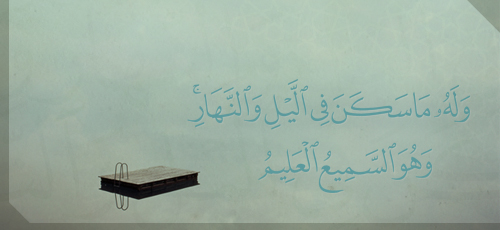 وَلَهُۥ مَا سَكَنَ فِى ٱلَّيْلِ وَٱلنَّهَارِ ۚ
وَهُوَ ٱلسَّمِيعُ ٱلْعَلِيمُ